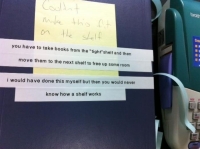 Couldn't
make this fit
on the shelf
you have to take books from the "tight" shelf and then
move them to the next shelf to free up some room
i would have done this myself but then you would never
know how a shelf works